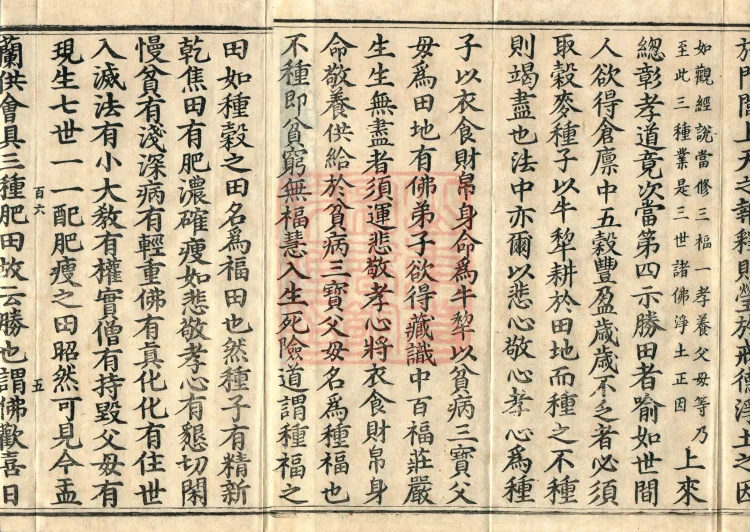 如觀經說當修三福一孝養父母等乃
至此三種業是三世諸佛淨土正因
上來
總彰孝道竟次當第四示勝田者喻如世間
人欲得倉廪中五穀豐盈歲歲不乏者必須
取穀麥種子以牛犂耕於田地而種之不種
則竭盡也法中亦爾以悲心敬心孝心爲種
子以衣食財帛身命爲牛犂以貧病三寶父
母爲田地有佛弟子欲得藏識中百福莊嚴
生生無盡者須運悲敬孝心將衣食財帛身
命敬養供給於貧病三寶父母名爲種福也
不種即貧窮無福慧入生死險道謂種福之
田如種穀之田名爲福田也然種子有精新
乾焦田有肥濃確瘦如悲敬孝心有懇切閑
慢貧有淺深病有輕重佛有眞化化有住世
入滅法有小大教有權實僧有持毀父母有
現生七世一一配肥瘦之田昭然可見今盂
百六
五
蘭供會具三種肥田故云勝也謂佛歡喜日